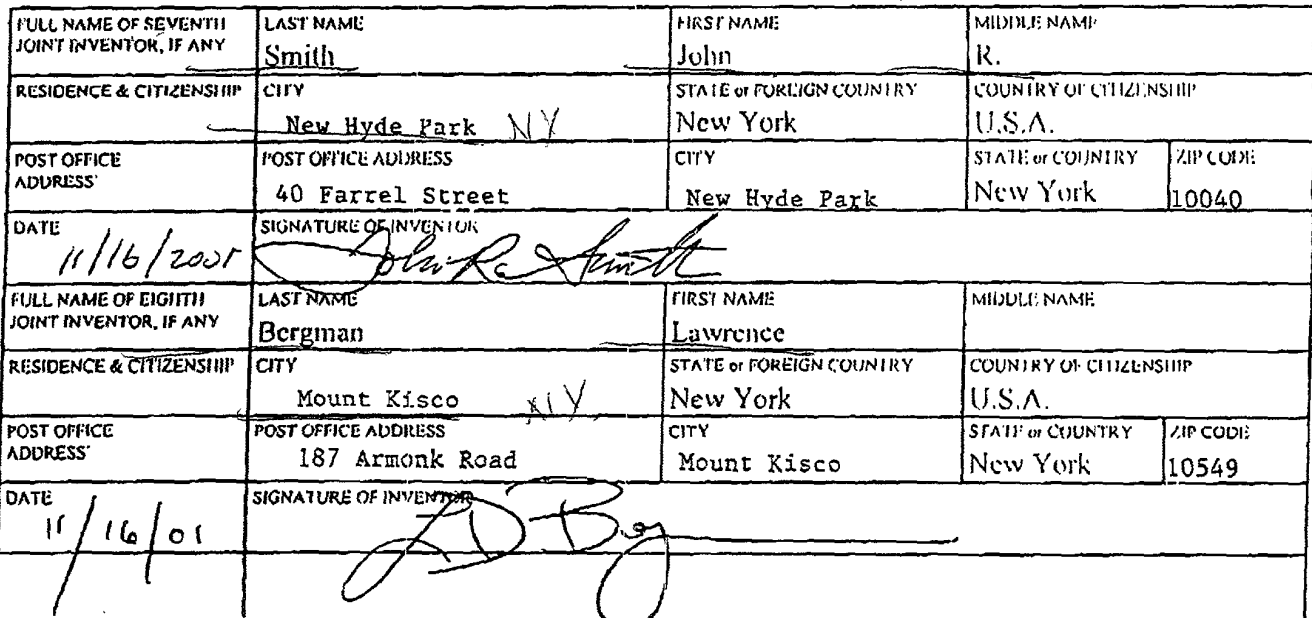 FULL NAME OF SEVENTH JOINT INVENTOR, IF ANY
LAST NAME
Smith
FIRST NAME
John
MIDDLE NAME
R.
RESIDENCE & CITIZENSHIP
CITY
New Hyde Park NY
STATE or FOREIGN COUNTRY
New York
COUNTRY OF CITIZENSHIP
U.S.A.
POST OFFICE ADDRESS
POST OFFICE ADDRESS
40 Farrel Street
CITY
New Hyde Park
STATE or COUNTRY
New York
ZIP CODE
10040
DATE
11/16/2001
SIGNATURE OF INVENTOR
John R. Smith
FULL NAME OF EIGHTH JOINT INVENTOR, IF ANY
LAST NAME
Bergman
FIRST NAME
Lawrence
MIDDLE NAME
RESIDENCE & CITIZENSHIP
CITY
Mount Kisco NY
STATE or FOREIGN COUNTRY
New York
COUNTRY OF CITIZENSHIP
U.S.A.
POST OFFICE ADDRESS
POST OFFICE ADDRESS
187 Armonk Road
CITY
Mount Kisco
STATE or COUNTRY
New York
ZIP CODE
10549
DATE
11/16/01
SIGNATURE OF INVENTOR